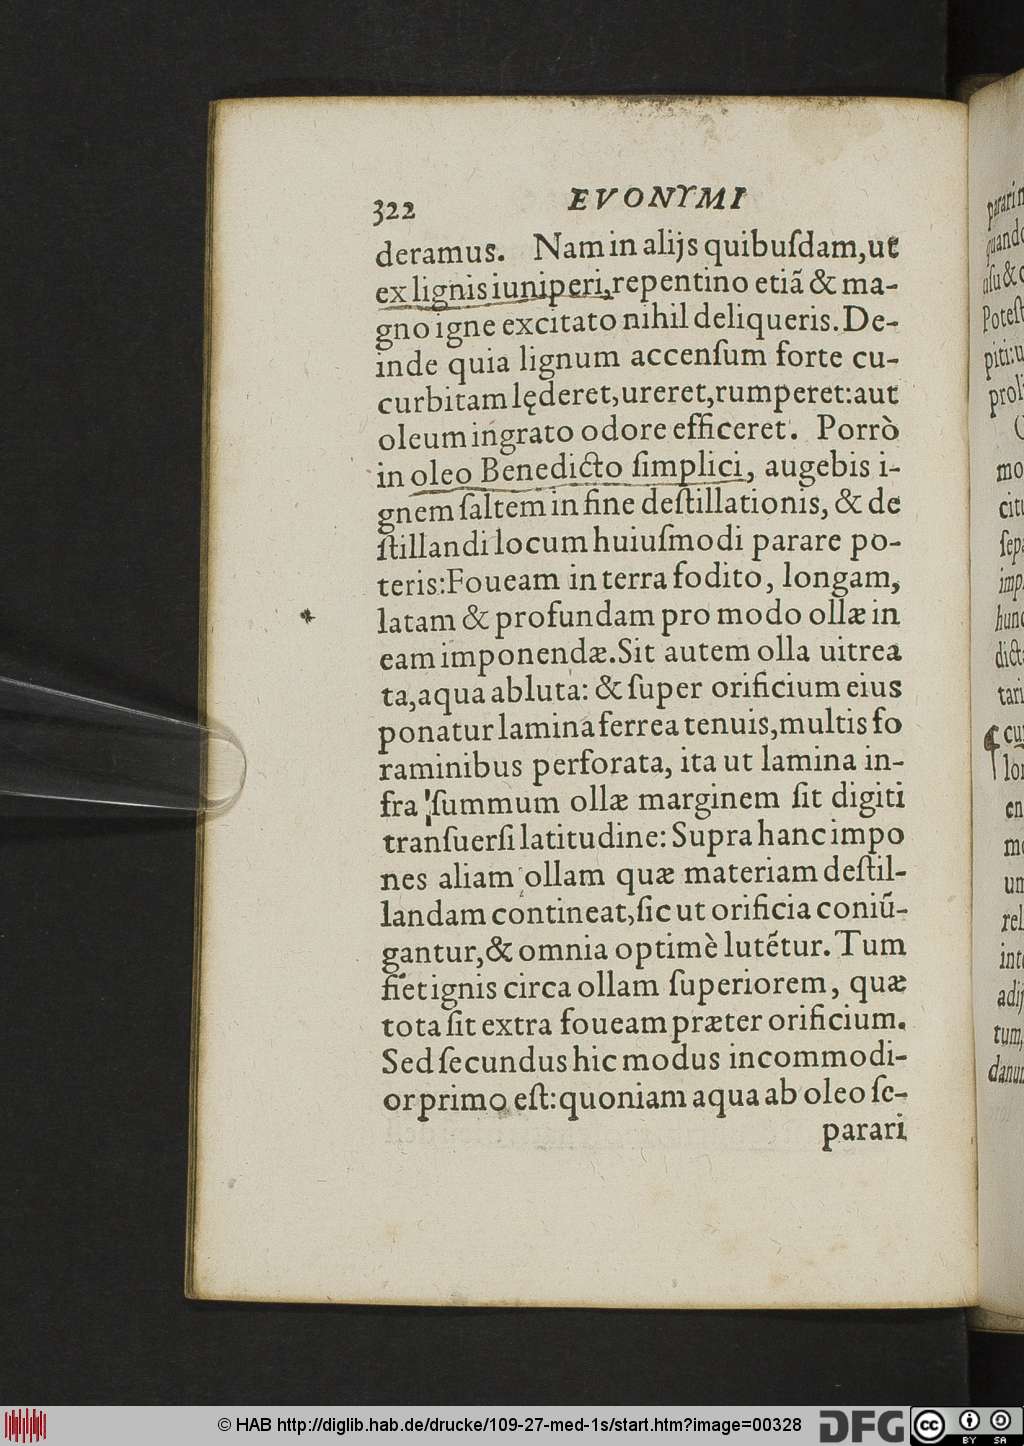 322 EVONYMI
deramus. Nam in alijs quibuſdam, ut
ex lignis iuniperi, repentino etiã & ma-
gno igne excitato nihil deliqueris. De-
inde quia lignum accenſum forte cu-
curbitam lęderet, ureret, rumperet: aut
oleum ingrato odore efficeret. Porrò
in oleo Benedicto ſimplici, augebis i-
gnem ſaltem in fine deſtillationis, & de
ſtillandi locum huiuſmodi parare po-
teris: Foueam in terra fodito, longam,
latam & profundam pro modo ollæ in
eam imponendæ. Sit autem olla uitrea
ta, aqua abluta: & ſuper orificium eius
ponatur lamina ferrea tenuis, multis fo
raminibus perforata, ita ut lamina in-
fra ſummum ollæ marginem ſit digiti
tranſuerſi latitudine: Supra hanc impo
nes aliam ollam quæ materiam deſtil-
landam contineat, ſic ut orificia coniũ-
gantur, & omnia optimè lutẽtur. Tum
fiet ignis circa ollam ſuperiorem, quæ
tota ſit extra foueam præter orificium.
Sed ſecundus hic modus incommodi-
or primo eſt: quoniam aqua ab oleo ſe-
parari
© HAB http://diglib.hab.de/drucke/109-27-med-1s/start.htm?image=00328 DFG cc BY SA